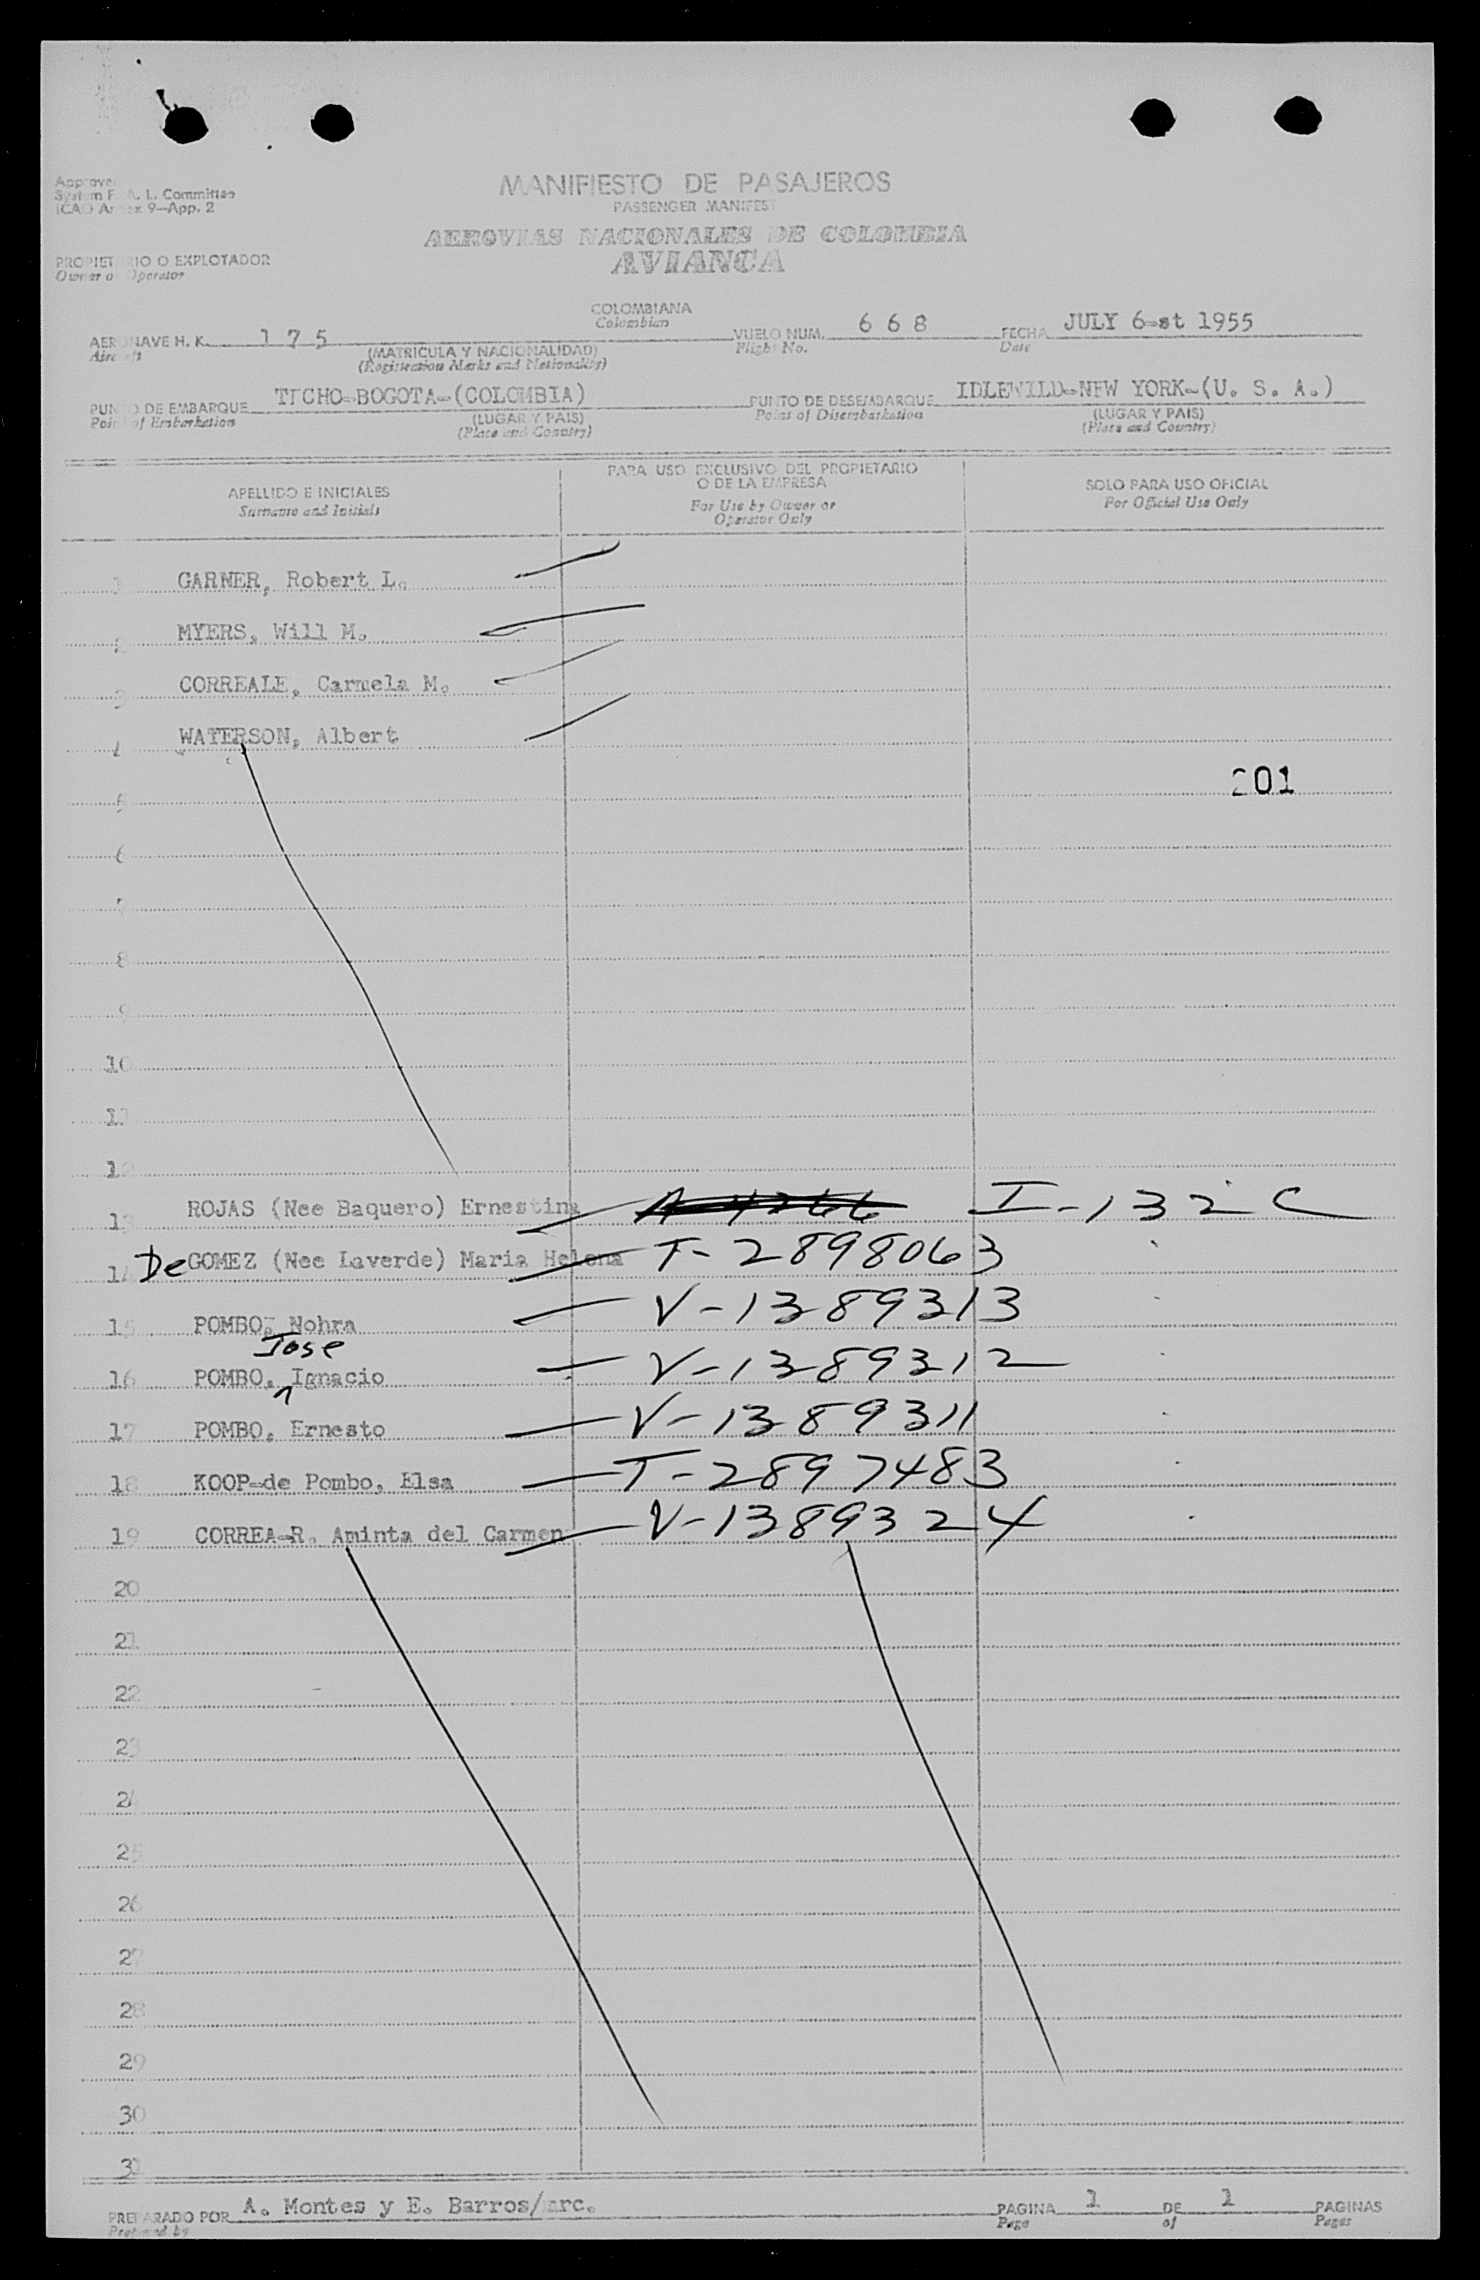 MANIFIESTO DE PASAJEROS
PASSENGER MANIFEST
I. Committee
9—App. 2
AEROVIAS NACIONALES DE COLOMBIA
AVIANCA
O EXPLOTADOR
COLOMBIANA
Colombian
H. K. 175
(MATRICULA Y NACIONALIDAD)
(Registration Marks and Nationality)
VUELO NUM. 668
Flight No.
FECHA JULY 6-st 1955
Date
DE EMBARQUE TECHO-BOGOTA-(COLOMBIA)
of Embarkation
(LUGAR Y PAIS)
(Place and Country)
PUNTO DE DESEMBARQUE IDLEWILD-NEW YORK-(U. S. A.)
Point of Disembarkation
(LUGAR Y PAIS)
(Place and Country)
APELLIDO E INICIALES
Surname and Initials
PARA USO EXCLUSIVO DEL PROPIETARIO
O DE LA EMPRESA
For Use by Owner or
Operator Only
SOLO PARA USO OFICIAL
For Official Use Only
1 GARNER, Robert L.
2 MYERS, Will M.
3 CORREALE, Carmela M.
4 WATERSON, Albert
201
5
6
7
8
9
10
11
12
13 ROJAS (Nee Baquero) Ernestina I-132 C
14 De GOMEZ (Nee Laverde) Maria Helena T-2898063
15 POMBO, Nohra V-1389313
16 POMBO, Jose Ignacio V-1389312
17 POMBO, Ernesto V-1389311
18 KOOP-de Pombo, Elsa T-2897483
19 CORREA-R. Aminta del Carmen V-1389324
20
21
22
23
24
25
26
27
28
29
30
31
PREPARADO POR A. Montes y E. Barros/arc.
Prepared by
PAGINA 1 DE 1 PAGINAS
Page of Pages